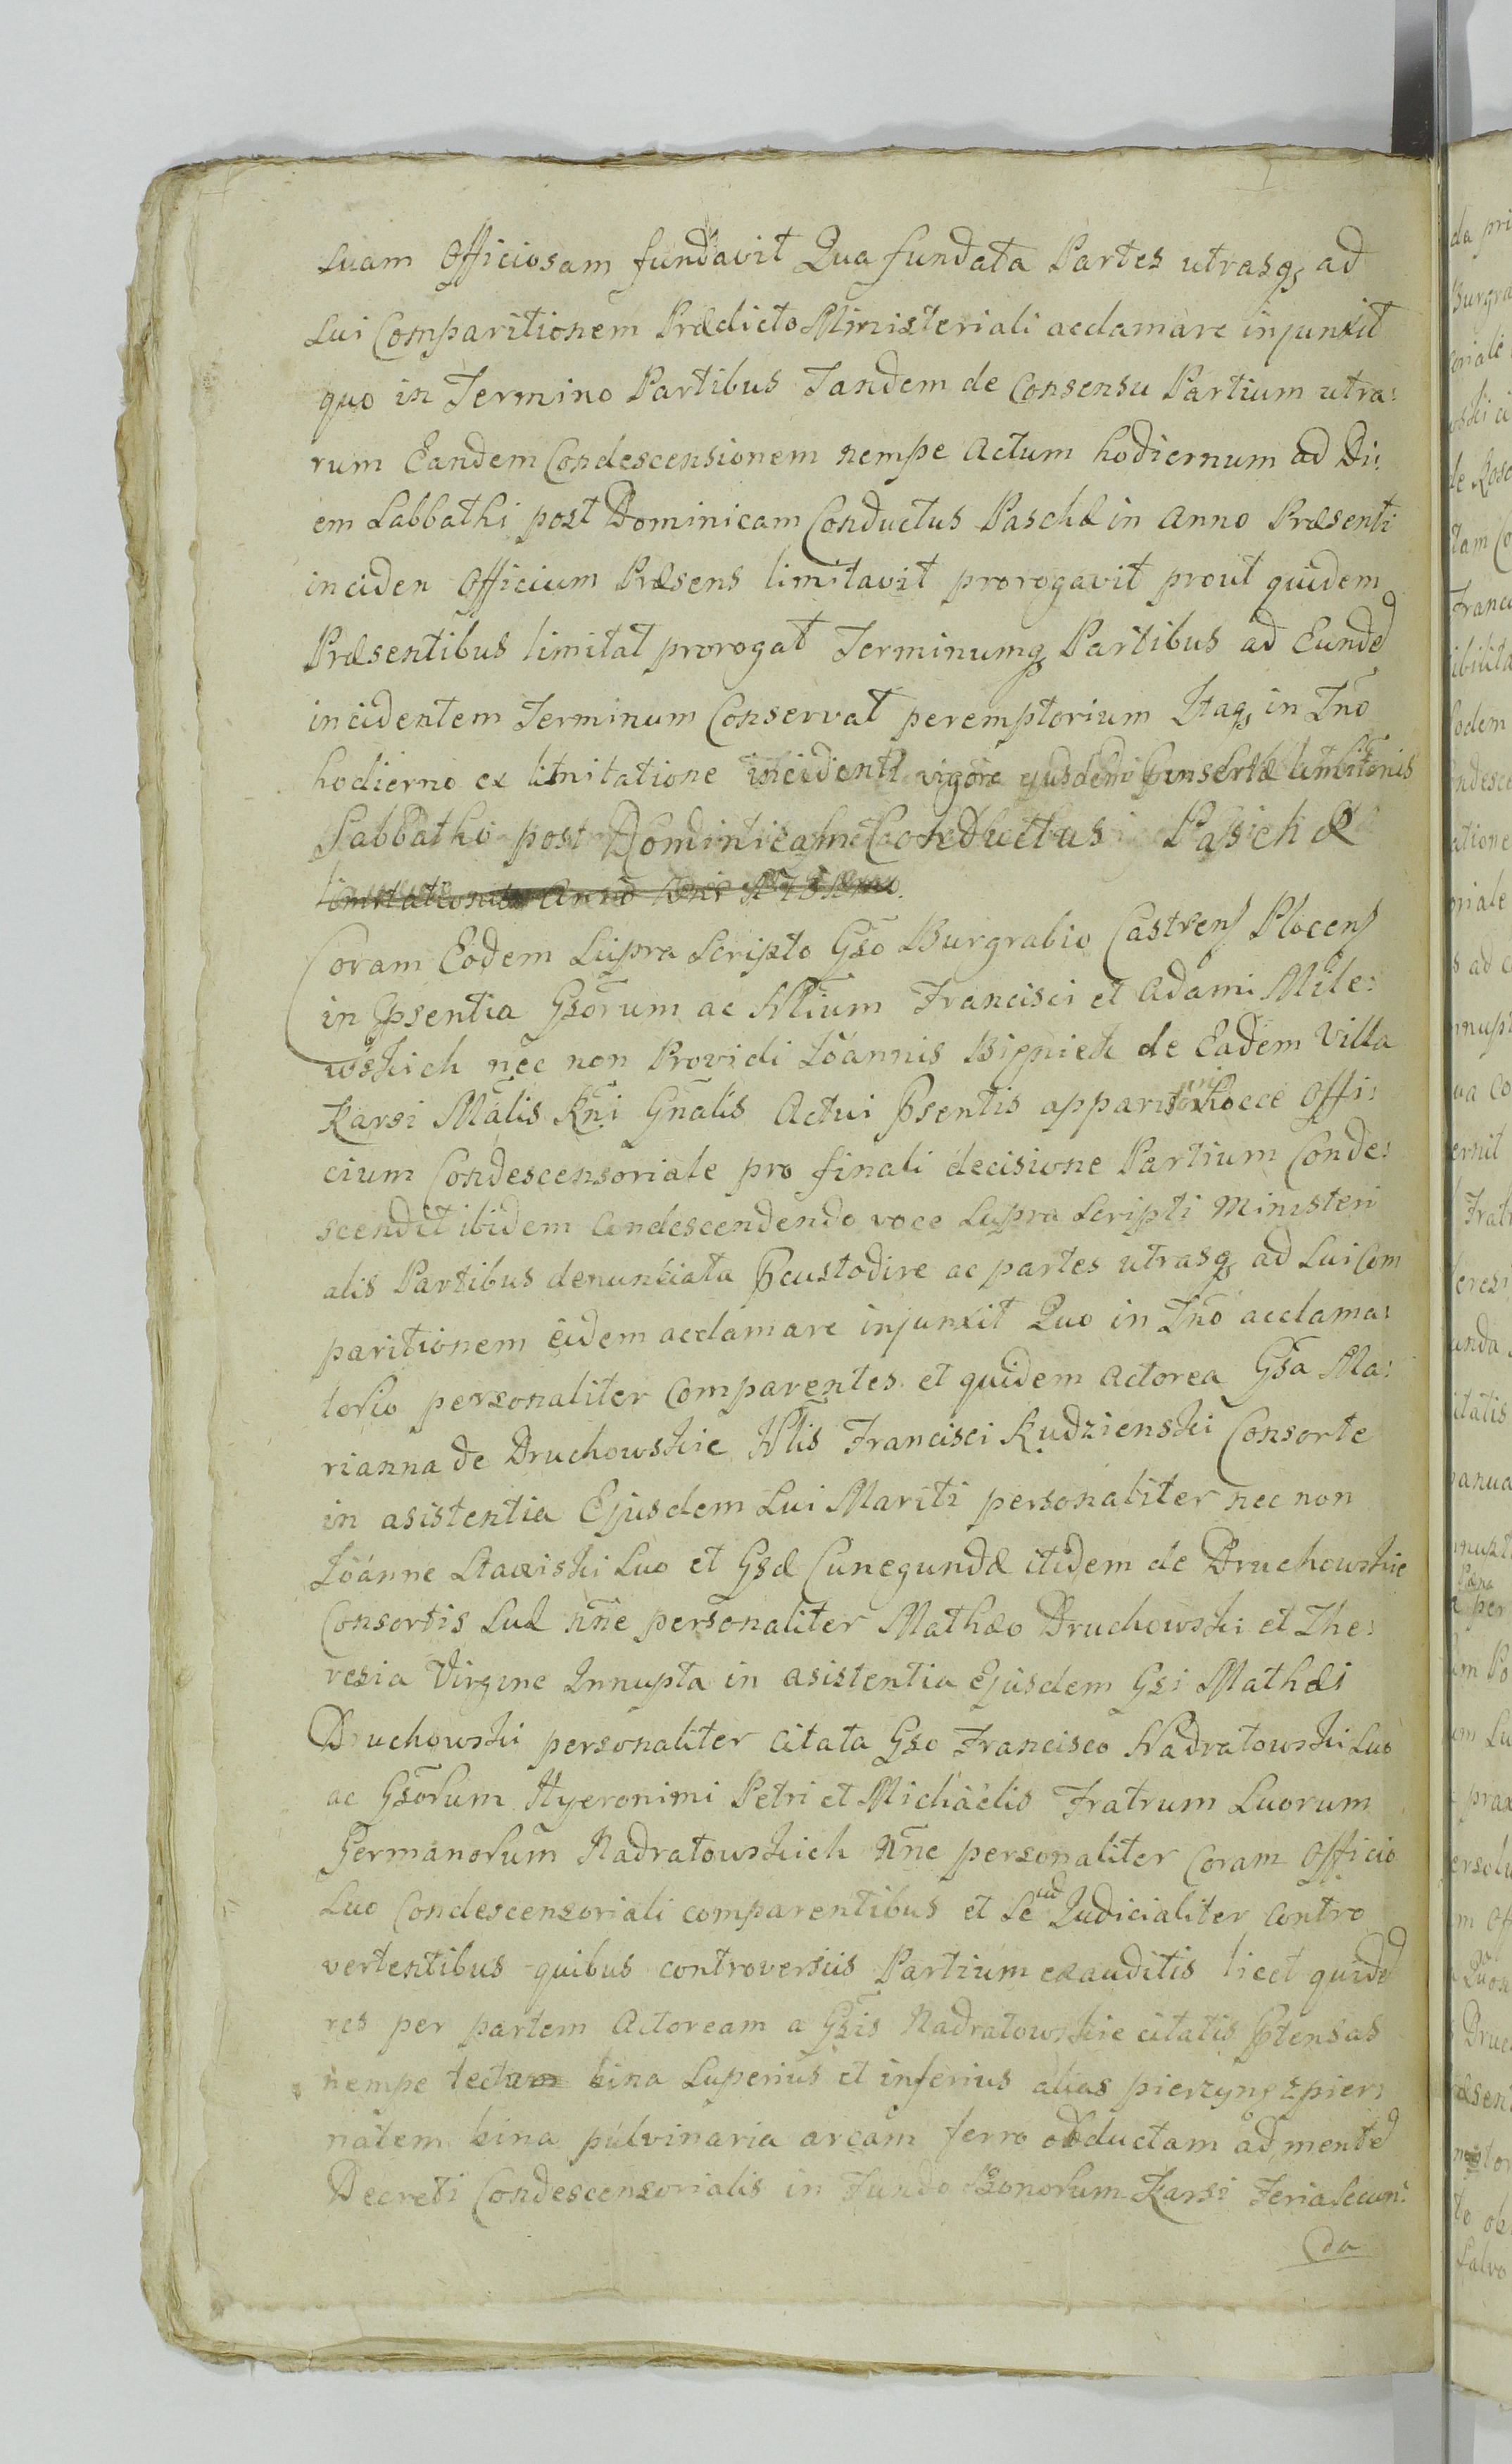 suam Officiosam fundavit Qua fundata Partes utrasq, ad
sui Comparitionem Prædicto Ministeriali acclamare injunxit
quo in Termino Partibus Tandem de Consensu Partium utra:
rum Eandem Condescensionem nempe Actum hodiernum ad Di:
em Sabbathi post Dominicam Conductus Paschæ in Anno Præsenti
inciden Officium Præsens limitavit prorogavit prout quidem
Præsentibus limitat prorogat Terminumq, Partibus ad Eunde
incidentem Terminum Conservat peremptorium Itaq, in Tno
hodierno ex limitatione incidenti vigore ejusdem insertæ limitonis
Sabbatho post Dominicam Conductus Paschæ
limitationis Anno
Coram Eodem Supra Scripto Gso Burgrabio Castrens Plocens
in Psentia Gsorum ac Nlium Francisci et Adami Mile:
wskich nec non Providi Joannis Bigniek de Eadem Villa
Karsi Mälis Rni Gnalis Actui Psentis apparitoris hocce Offi:
cium Condescensoriale pro finali decisione Partium Conde:
scendit ibidem Condescendendo voce Supra Scripti Ministeri
alis Partibus denunciata Pcustodire ac partes utrasq, ad sui Com
paritionem eidem acclamare injunxit Quo in Tno acclama:
torio personaliter Comparentes et quidem Actorea Gsa Ma:
rianna de Druchowskie Nlis Francisci Rudzienski Consorte
in asistentia Ejusdem Sui Mariti personaliter nec non
Joanne Stawiski Suo et Gsæ Cunegundæ itidem de Druchowskie
Consortis Suæ nne personaliter Mathæo Druchowski et The:
resia Virgine Innupta in asistentia Ejusdem Gsi Mathæi
Druchowski personaliter citata Gso Francisco Nadratowski Suo
ac Gsorum Hyeronimi Petri et Michaelis Fratrum Suorum
Germanorum Nadratowskich nne personaliter Coram Officio
Suo Condescensoriali comparentibus et Se Judicialiter Contro
vertentibus quibus controversiis Partium exauditis licet quide
res per partem Actoream a Gsis Nadratowskie citatis Ptensas
nempe bina Superius et inferius alias pierzyne z pier:
natem bina pulvinaria arcam ferro obductam ad mente
Decreti Condescensorialis in Fundo Bonorum Karsi Feria Secun:
da